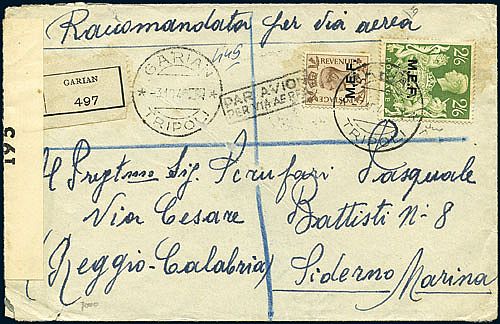 Raccomandata per via aerea
GARIAN
497
GARIAN
TRIPOLI
PAR AVION
PER VIA AEREA
REVENUE
POSTAGE
M.E.F.
2/6
2/6
M.E.F.
TRIPOLI
195
Sig. Scrufari Pasquale
Via Cesare Battisti N-8
(Reggio-Calabria) Siderno Marina